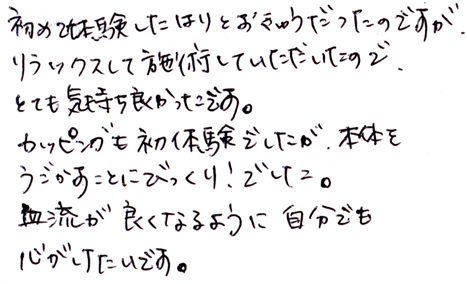 初めて体験したはりとおきゅうだったのですが、
リラックスして施術していただいたので、
とても気持ち良かったです。
カッピングも初体験でしたが、本体を
うごかすことにびっくり!でした。
血流が良くなるように自分でも
心がけたいです。